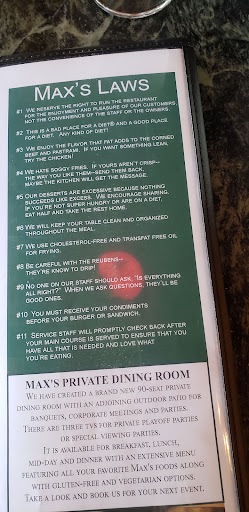 MAX'S LAWS
#1 WE RESERVE THE RIGHT TO RUN THE RESTAURANT
FOR THE ENJOYMENT AND PLEASURE OF OUR CUSTOMERS,
NOT THE CONVENIENCE OF THE STAFF OR THE OWNERS.
#2 THIS IS A BAD PLACE FOR A DIET® AND A GOOD PLACE
FOR A DIET. ANY KIND OF DIET!
#3 WE ENJOY THE FLAVOR THAT FAT ADDS TO THE CORNED
BEEF AND PASTRAMI. IF YOU WANT SOMETHING LEAN,
TRY THE CHICKEN!
#4 WE HATE SOGGY FRIES. IF YOURS AREN'T CRISP--
THE WAY YOU LIKE THEM--SEND THEM BACK.
MAYBE THE KITCHEN WILL GET THE MESSAGE.
#5 OUR DESSERTS ARE EXCESSIVE BECAUSE NOTHING
SUCCEEDS LIKE EXCESS. WE ENCOURAGE SHARING.
IF YOU'RE NOT SUPER HUNGRY OR ARE ON A DIET,
EAT HALF AND TAKE THE REST HOME.
#6 WE WILL KEEP YOUR TABLE CLEAN AND ORGANIZED
THROUGHOUT THE MEAL.
#7 WE USE CHOLESTEROL-FREE AND TRANSFAT FREE OIL
FOR FRYING.
#8 BE CAREFUL WITH THE REUBENS--
THEY'RE KNOWN TO DRIP!
#9 NO ONE ON OUR STAFF SHOULD ASK, "IS EVERYTHING
ALL RIGHT?" WHEN WE ASK QUESTIONS, THEY'LL BE
GOOD ONES.
#10 YOU MUST RECEIVE YOUR CONDIMENTS
BEFORE YOUR BURGER OR SANDWICH.
#11 SERVICE STAFF WILL PROMPTLY CHECK BACK AFTER
YOUR MAIN COURSE IS SERVED TO ENSURE THAT YOU
HAVE ALL THAT IS NEEDED AND LOVE WHAT
YOU'RE EATING.
MAX'S PRIVATE DINING ROOM
WE HAVE CREATED A BRAND NEW 90-SEAT PRIVATE
DINING ROOM WITH AN ADJOINING OUTDOOR PATIO FOR
BANQUETS, CORPORATE MEETINGS AND PARTIES.
THERE ARE THREE TVS FOR PRIVATE PLAYOFF PARTIES
OR SPECIAL VIEWING PARTIES.
IT IS AVAILABLE FOR BREAKFAST, LUNCH,
MID-DAY AND DINNER WITH AN EXTENSIVE MENU
FEATURING ALL YOUR FAVORITE MAX'S FOODS ALONG
WITH GLUTEN-FREE AND VEGETARIAN OPTIONS.
TAKE A LOOK AND BOOK US FOR YOUR NEXT EVENT.